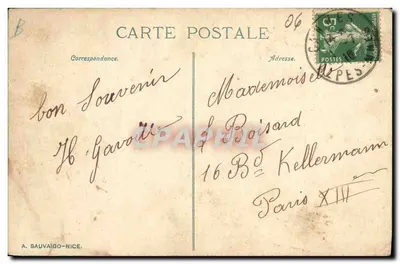 B
06
CARTE POSTALE
Correspondance.
Adresse.
bon Souvenir
H. Gavod
Mademoiselle
L Boisard
16 Bd Kellermann
Paris XIII
5
POSTES
ALPES
A. SAUVAIGO-NICE.